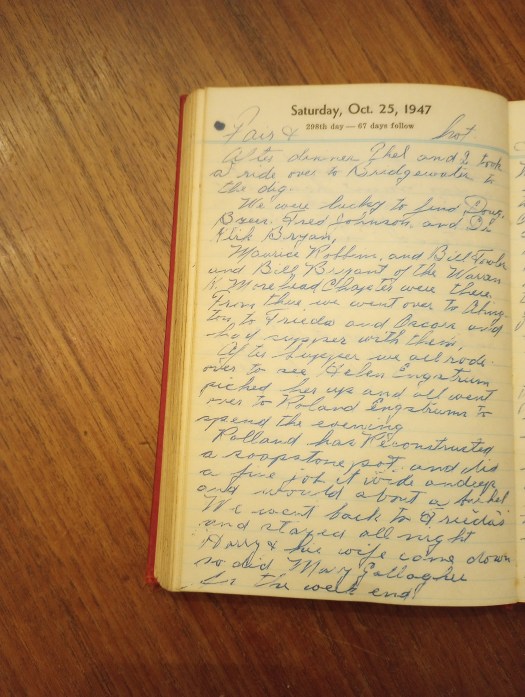 Saturday, Oct. 25, 1947
298th day — 67 days follow
Fair & hot
After dinner Thel and I took
a ride over to Bridgewater to
the dig.
We were lucky to find Doug.
Byers. Fred Johnson, and
Kirk Bryan,
Maurice Robbins, and Bill Fowler
and Bill Bryant of the Warren
K. Morehead Chapter were there.
From there we went over to Abing-
ton, to Frieda and Oscar and
had supper with them,
After supper we all rode
over to see Helen Engstrum
picked her up and all went
over to Roland Engstrums to
spend the evening
Rolland has Reconstructed
a soapstone pot. and did
a fine job it wide and
and would about a
We went back to Frieda's
and stayed all night
Harry & his wife come down
so did Mary Gallagher
for the week end.